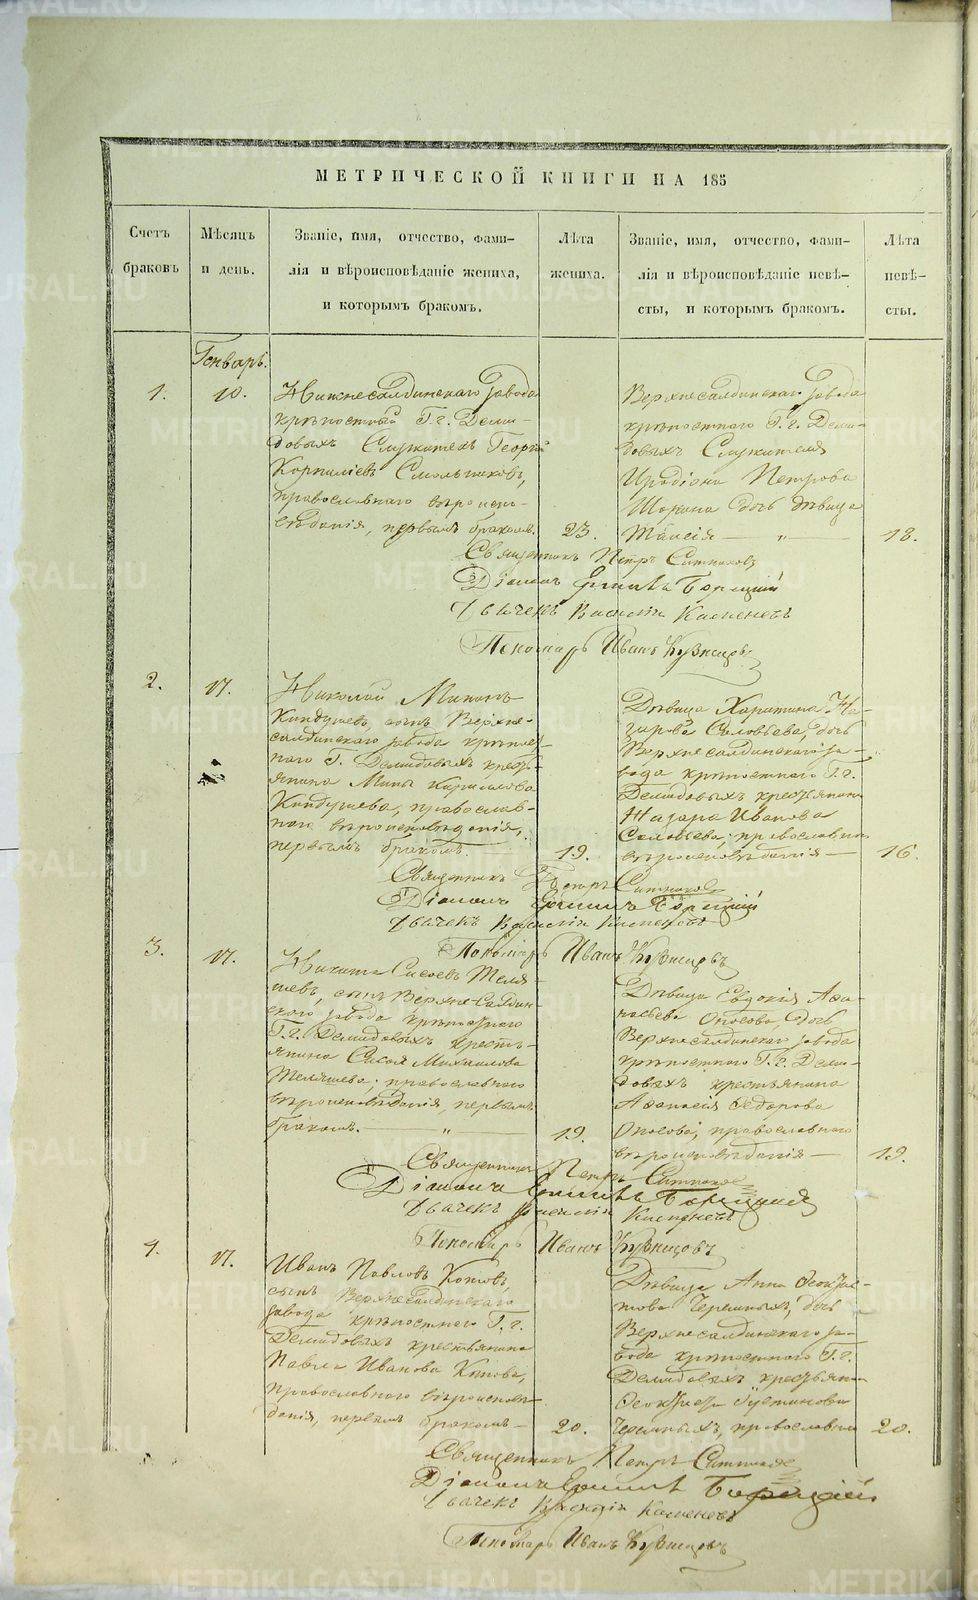 МЕТРИЧЕСКОЙ КНИГИ НА 185
Счетъ браковъ
Мѣсяцъ и день.
Званіе, имя, отчество, фами-
лія и вѣроисповѣданіе жениха,
и которымъ бракомъ.
Лѣта жениха.
Званіе, имя, отчество, фами-
лія и вѣроисповѣданіе невѣ-
сты, и которымъ бракомъ.
Лѣта невѣ-
сты.
Генварь.
1.
10.
Нижнесалдинскаго завода
крѣпостной Г.г. Деми-
довыхъ Служитель Георгій
Корниліевъ Смольниковъ,
православнаго вѣроиспо-
вѣданія, первымъ бракомъ.
23.
Верхнесалдинскаго завода
крѣпостнаго Г.г. Деми-
довыхъ Служителя
Иродіона Петрова
дочь дѣвица
Таисія — „ —
18.
Священникъ Петръ Ситниковъ
Діаконъ
Дьячекъ Василій
Пономарь Иванъ Кузнецовъ
2.
17.
Николай Мининъ
Кондушевъ, сынъ Верхне-
салдинскаго завода крѣпос-
наго Г. Демидовыхъ кресть-
янина Мины
православ-
наго вѣроисповѣданія,
первымъ бракомъ.
19.
Дѣвица Харитина На-
зарова Соловьева, дочь
Верхнесалдинскаго за-
вода крѣпостнаго Г.г.
Демидовыхъ крестьянина
Назара Иванова
Соловьева, православнаго
вѣроисповѣданія —
16.
Священникъ Петръ Ситниковъ
Діаконъ
Дьячекъ Василій
Пономарь Иванъ Кузнецовъ
3.
17.
Никита Сисоевъ Теля-
шевъ, сынъ Верхне-Салдин-
скаго завода крѣпостнаго
Г.г. Демидовыхъ кресть-
янина Сисоя Михайлова
Теляшева, православнаго
вѣроисповѣданія, первымъ
бракомъ. — „ —
19.
Дѣвица Евдокія Афа-
насьева дочь
Верхнесалдинскаго завода
крѣпостнаго Г.г. Деми-
довыхъ крестьянина
Афанасія Федорова
православнаго
вѣроисповѣданія —
19.
Священникъ Петръ Ситниковъ
Діаконъ
Дьячекъ Василій
Пономарь Иванъ Кузнецовъ
4.
17.
Иванъ Павловъ Котовъ,
сынъ Верхнесалдинскаго
завода крѣпостнаго Г.г.
Демидовыхъ крестьянина
Павла Иванова Котова,
православнаго вѣроисповѣ-
данія, первымъ бракомъ —
20.
Дѣвица Анна Ѳеоктис-
това Черемныхъ, дочь
Верхнесалдинскаго за-
вода крѣпостнаго Г.г.
Демидовыхъ крестьяни-
Ѳеоктиста Устинова
Черемныхъ, православнаго
20.
Священникъ Петръ Ситниковъ
Діаконъ
Дьячекъ Василій
Пономарь Иванъ Кузнецовъ
METRIKI.GASO-URAL.RU